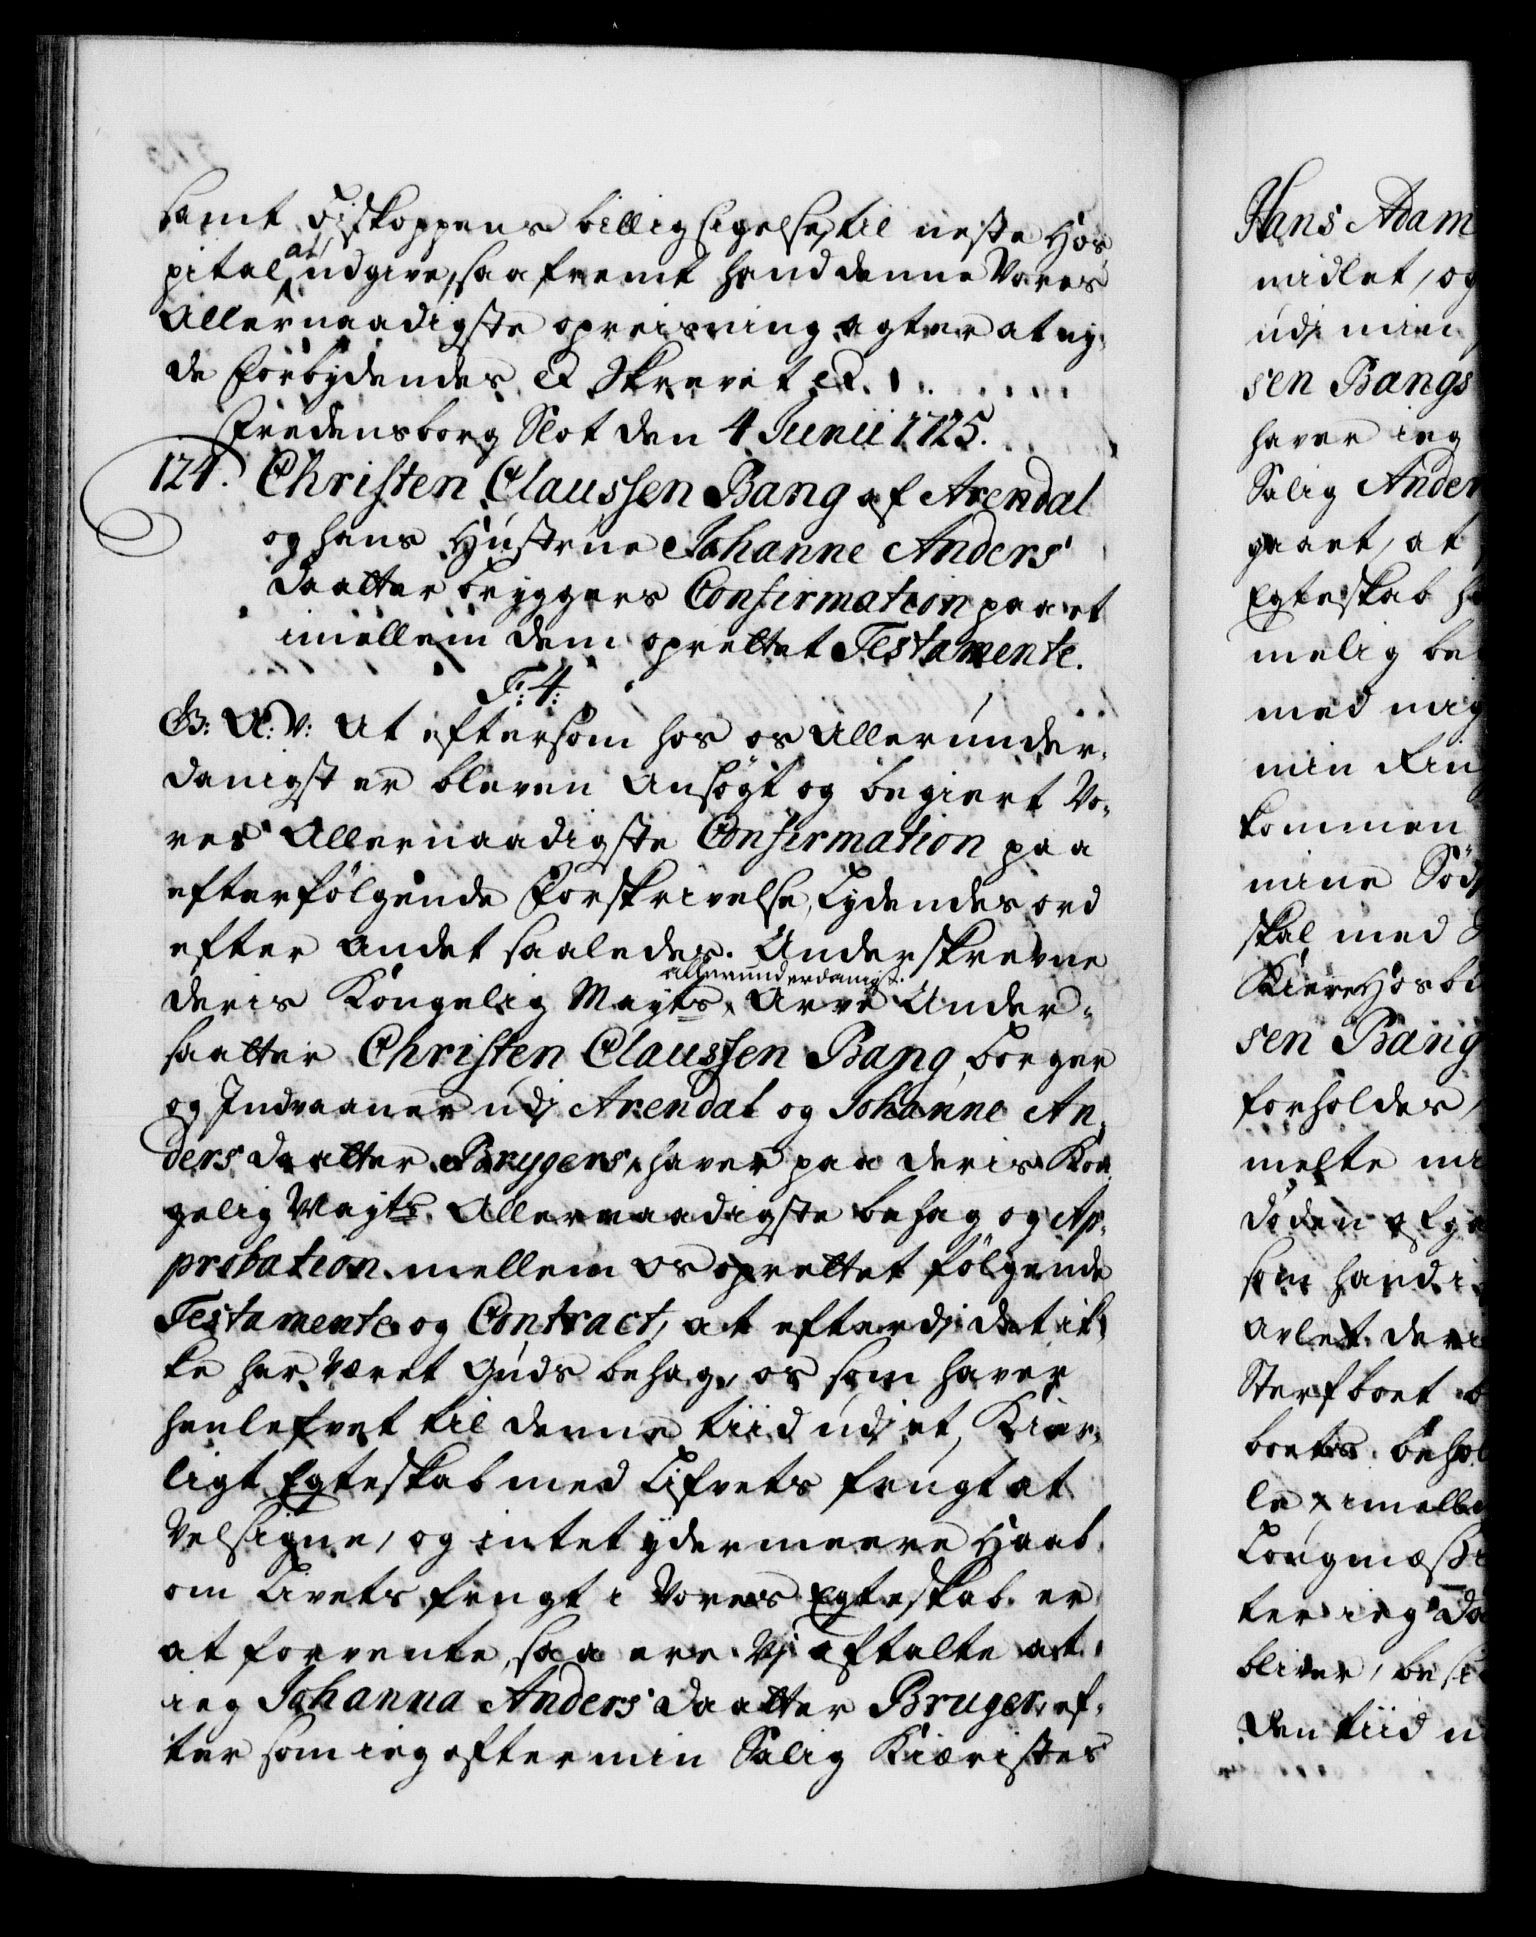 samt Biskoppens billigsigelse, til neste Hos-
pital at udgive, saa fremt hand denne Vores
Allernaadigste opreisning agter at ny-
de Forbydendes &c Skrevet &c.
Fredensborg Slot den 4 Junii 1725.
124. Christen Claussen Bang af Arendal
og hans Hustrue Johanne Anders
daatter bryggers Confirmation paa et
imellem dem oprettet Testamente.
F: 4:
G: A: V: At eftersom hos os Allerunder-
danigst er bleven Ansøgt og begiert Vo-
res Allernaadigste Confirmation paa
efterfølgende Forskrivelse, Lydendes ord
efter andet saaledes. Underskrevne
allerunderdanigst.
deris Kongelig Mayts Arve Under-
saatter Christen Claussen Bang, borger
og Indvaaner udj Arendal og Johanne An-
ders daatter Brygers, haver paa deris Kon-
gelig Mayts Allernaadigste behag og Ap-
probation mellem os oprettet følgende
Testamente og Contract, at efterdj det ik-
ke har været Guds behag, os som haver
henlefvet til denne tiid udj et Kier-
ligt Egteskab med Lifvets frugt at
Velsigne, og intet ydermeere Haab
om Livets frugt i Vores Egteskab er
at forvente, saa ere Vj aftalte at
ieg Johanna Anders daatter Bruger, ef-
ter som ieg efter min Salig Kieristes
Hans Adam
midlet, og
udj min
sen Bangs
haver ieg
Salig Ander
gaaet, at
Egteskab
melig be
med mig
min
kommen
mine Sød
skal med
Kiere Hosbo
sen Bang
forholdes,
melte mi
døden afga
som hand i
avlet. deri
Sterfboet
boets behol
le imell
Lougmæssi
ter ieg da
bliver, besi
den tiid u